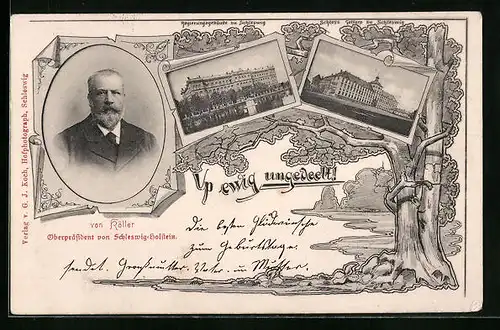 Regierungsgebäude in Schleswig
Schloss Gottorp in Schleswig
Verlag v. G. J. Koch, Hofphotograph, Schleswig
Up ewig ungedeelt!
von Köller
Oberpräsident von Schleswig-Holstein.
Die besten Glückwünsche
zum Geburtstage
sendet. Großmutter, Vater. u. Mutter.